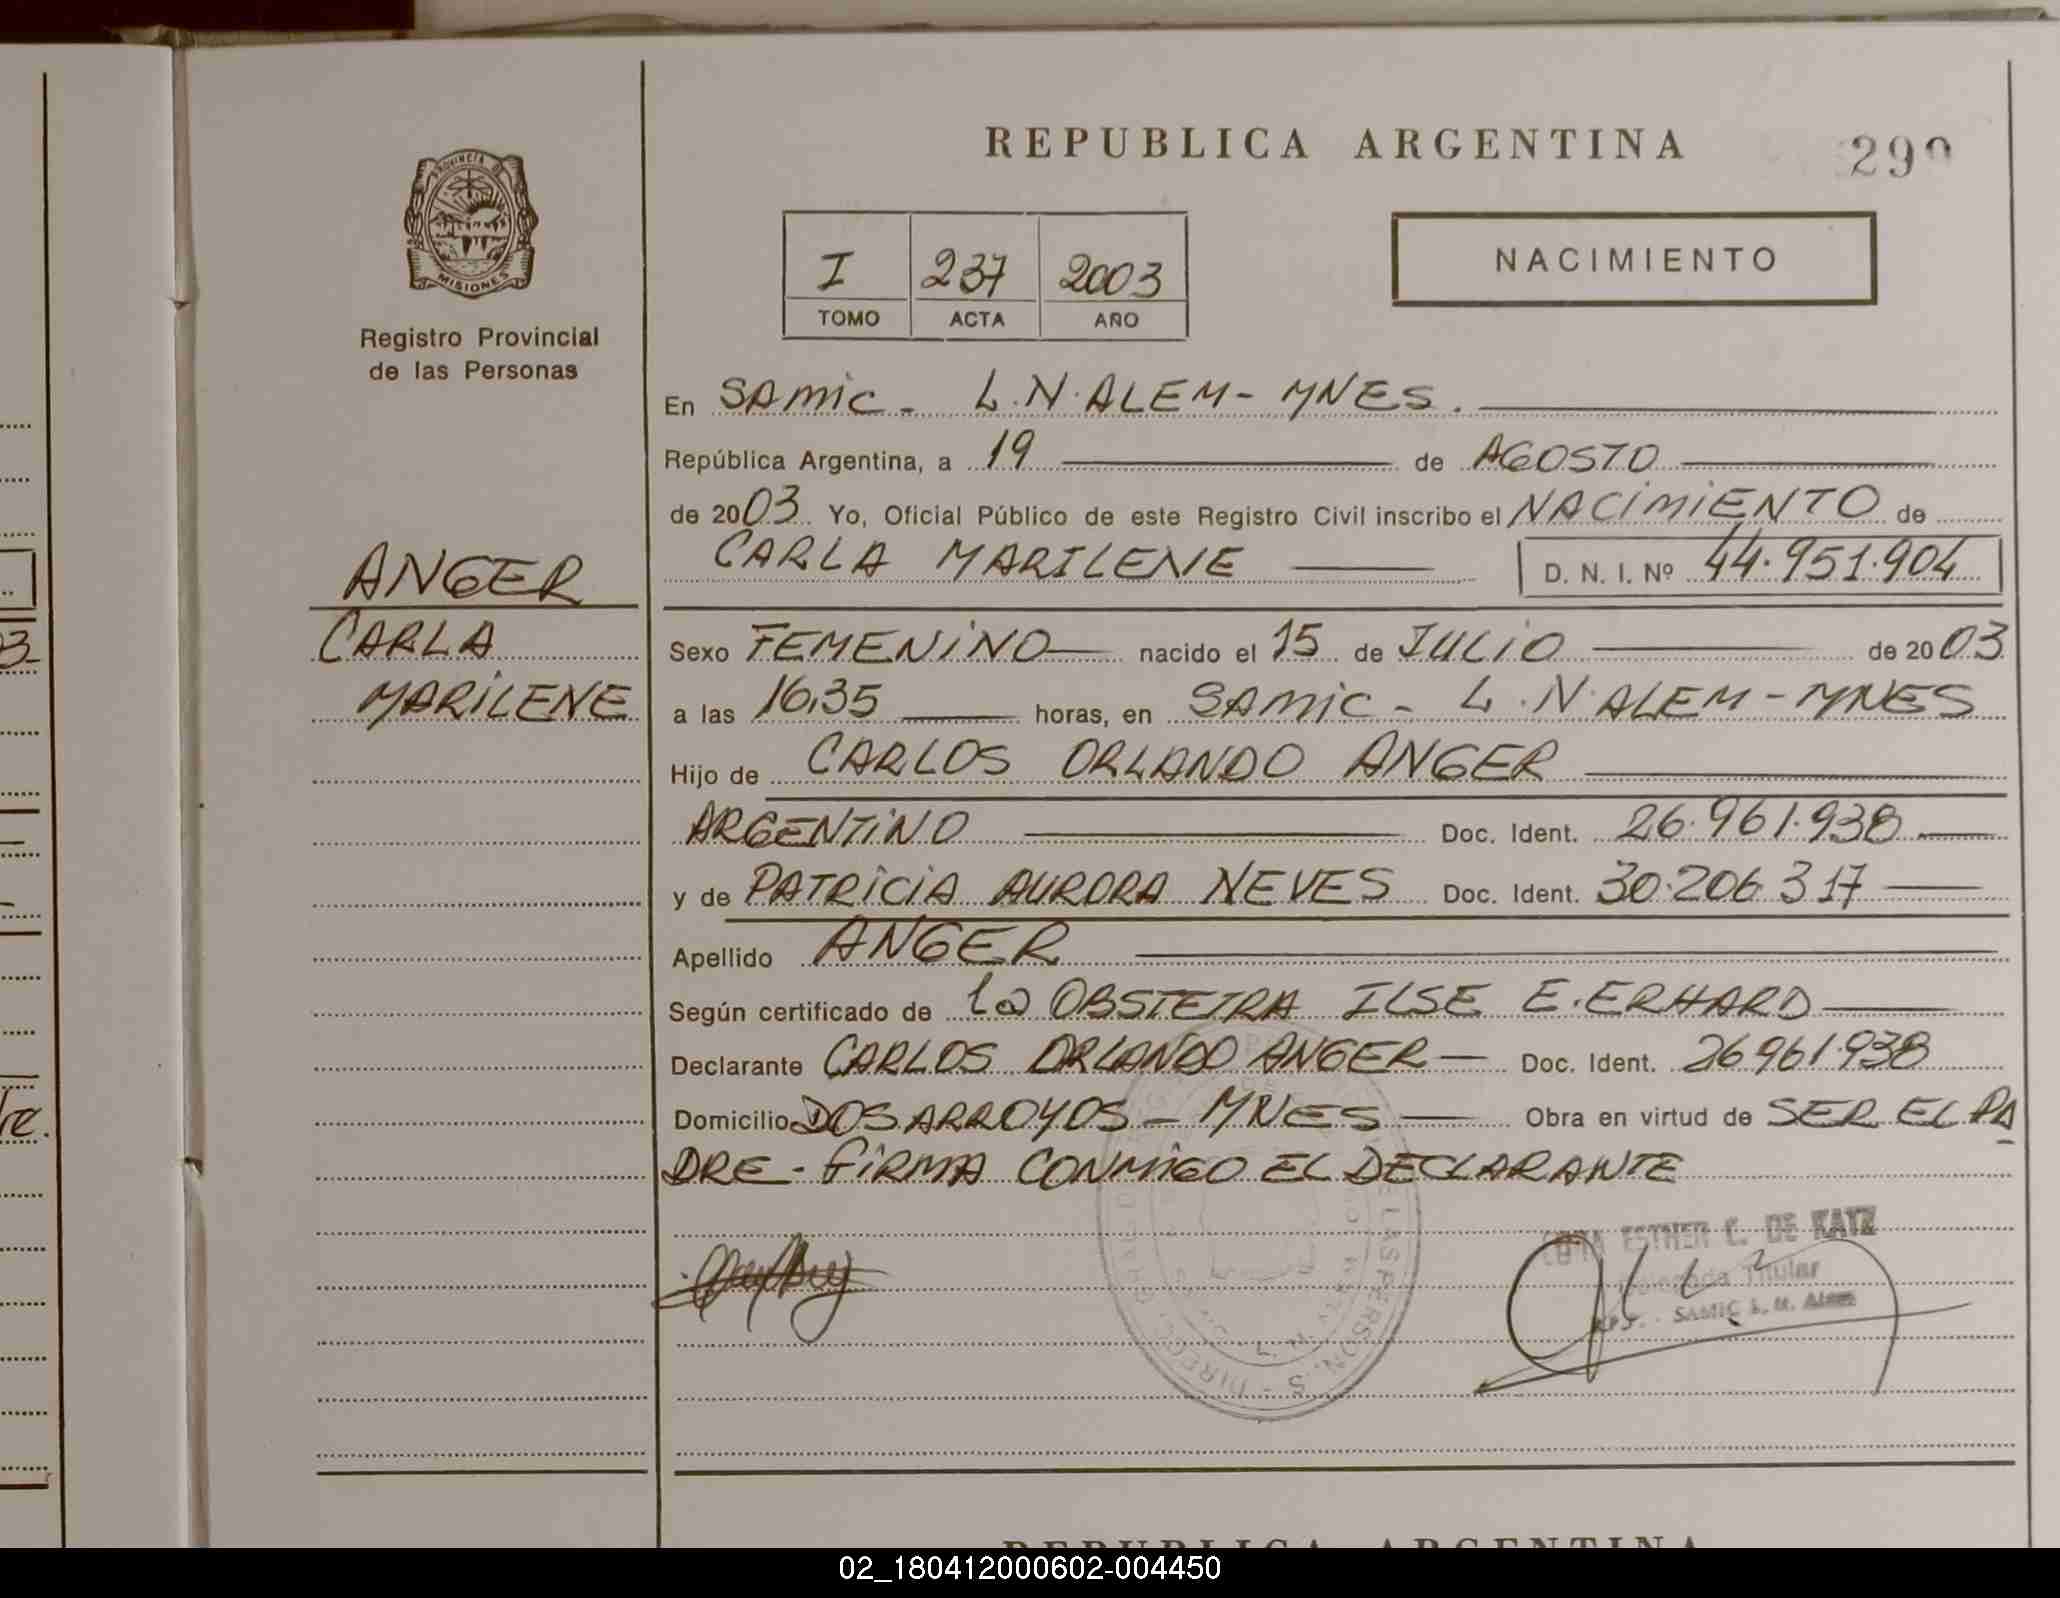 REPUBLICA ARGENTINA
299
PROVINCIA DE
MISIONES
Registro Provincial
de las Personas
I 237 2003
TOMO ACTA AÑO
NACIMIENTO
En SAMIC - L.N. ALEM - MNES.
República Argentina, a 19 de AGOSTO
de 2003 Yo, Oficial Público de este Registro Civil inscribo el NACIMIENTO de
CARLA MARILENE D. N. I. Nº 44.951.904
ANGER
CARLA
MARILENE
Sexo FEMENINO nacido el 15 de JULIO de 2003
a las 16,35 horas, en SAMIC - L.N. ALEM - MNES
Hijo de CARLOS ORLANDO ANGER
ARGENTINO Doc. Ident. 26.961.938
y de PATRICIA AURORA NEVES Doc. Ident. 30.206.317
Apellido ANGER
Según certificado de la OBSTETRA ILSE E. ERHARD
Declarante CARLOS ORLANDO ANGER Doc. Ident. 26961.938
Domicilio DOS ARROYOS - MNES Obra en virtud de SER EL PA
DRE - FIRMA CONMIGO EL DECLARANTE
ESTHER C. DE KATZ
Delegada Titular
SAMIC L. N. Alem
REPUBLICA ARGENTINA
02_180412000602-004450